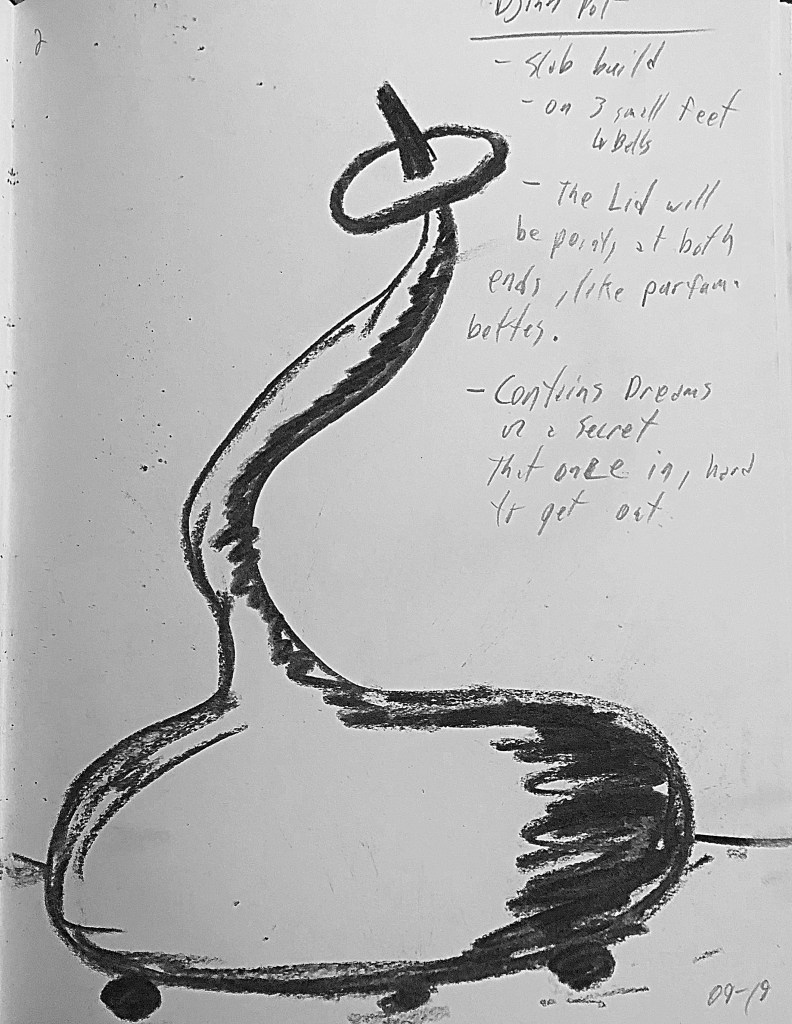 2
Djinn Pot
- Slab build
- on 3 small feet
or Balls
- The Lid will
be pointy at both
ends, like parfum
bottes.
- Contains Dreams
or a secret
that once in, hard
to get out.
09-19